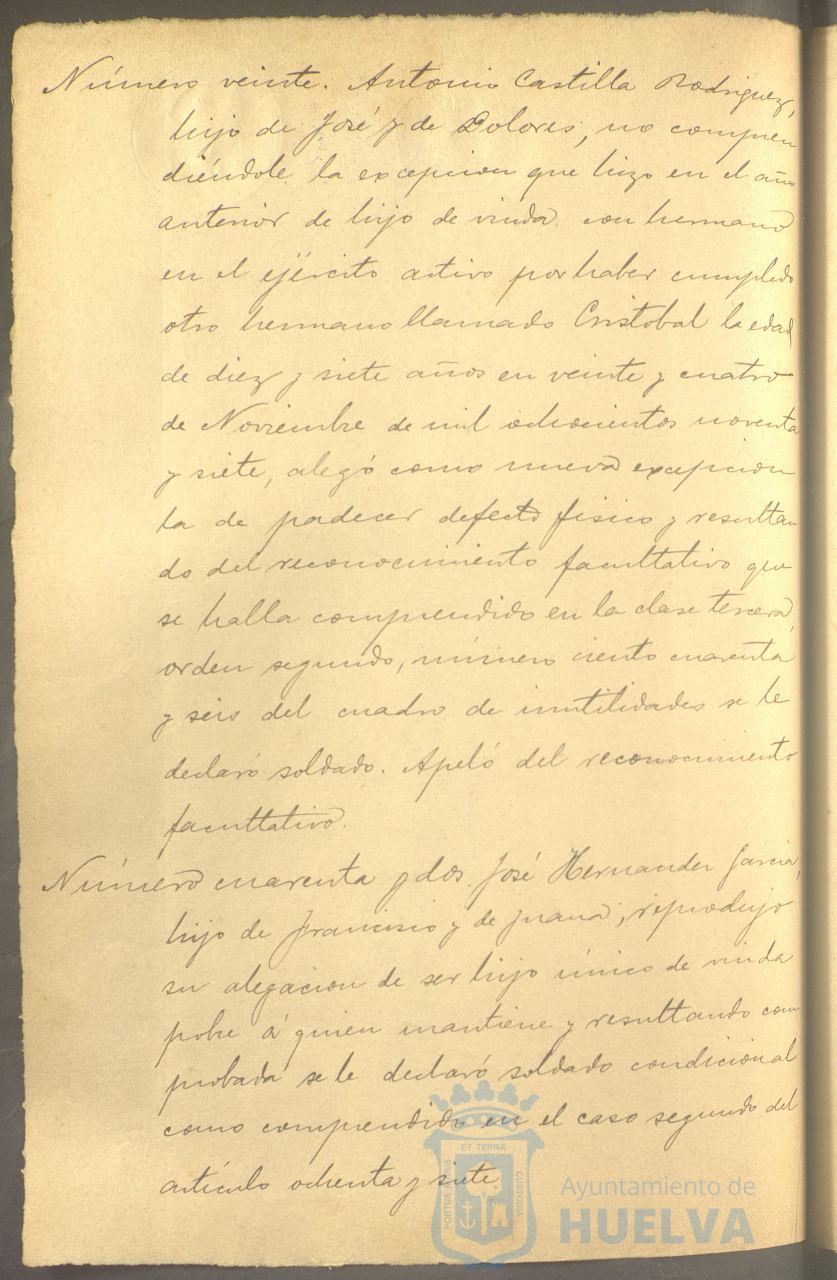 Número veinte. Antonio Castilla Rodriguez,
hijo de José y de Dolores, no compren
diéndole la excepcion que hizo en el año
anterior de hijo de viuda con hermano
en el ejército activo por haber cumplido
otro hermano llamado Cristobal la edad
de diez y siete años en veinte y cuatro
de Noviembre de mil ochocientos noventa
y siete, alegó como nueva excepcion
la de padecer defecto fisico y resultan
do del reconocimiento facultativo que
se halla comprendido en la clase tercera,
orden segundo, número ciento cuarenta
y seis del cuadro de inutilidades se le
declaró soldado. Apeló del reconocimiento
facultativo.
Número cuarenta y dos. José Hernandez Garcia,
hijo de Francisco y de Juana, reprodujo
su alegacion de ser hijo único de viuda
pobre á quien mantiene y resultando com
probada se le declaró soldado condicional
como comprendido en el caso segundo del
artículo ochenta y siete.
PORTUS MARIS ET TERRÆ CUSTODIA
Ayuntamiento de
HUELVA